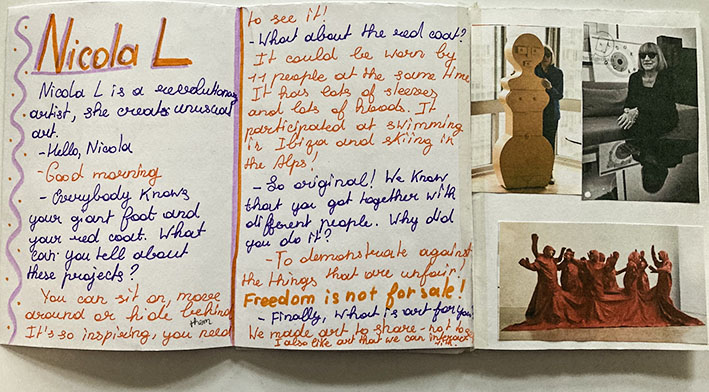 Nicola L
Nicola L is a revolutionary
artist, she creates unusual
art.
- Hello, Nicola
- Good morning
- Everybody knows
your giant foot and
your red coat. What
can you tell about
these projects?
You can sit on, move
around or hide behind
them
It's so inspiring, you need
to see it!
- What about the red coat?
It could be worn by
11 people at the same time
It has lots of sleeves
and lots of hoods. It
participated at swimming
in Ibiza and skiing in
the Alps!
- So original! We know
that you got together with
different people. Why did
you do it?
- To demonstrate against
the things that are unfair!
Freedom is not for sale!
- Finally, what is art for you
We made art to share - not to
I also like art that we can interact